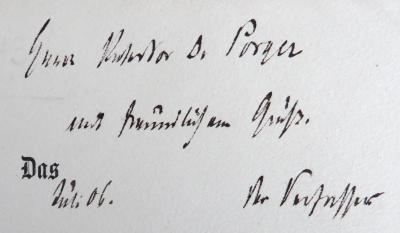 Herrn Rektor Dr Porger
mit freundlichem Gruß.
Das
Juli 06. Der Verfasser